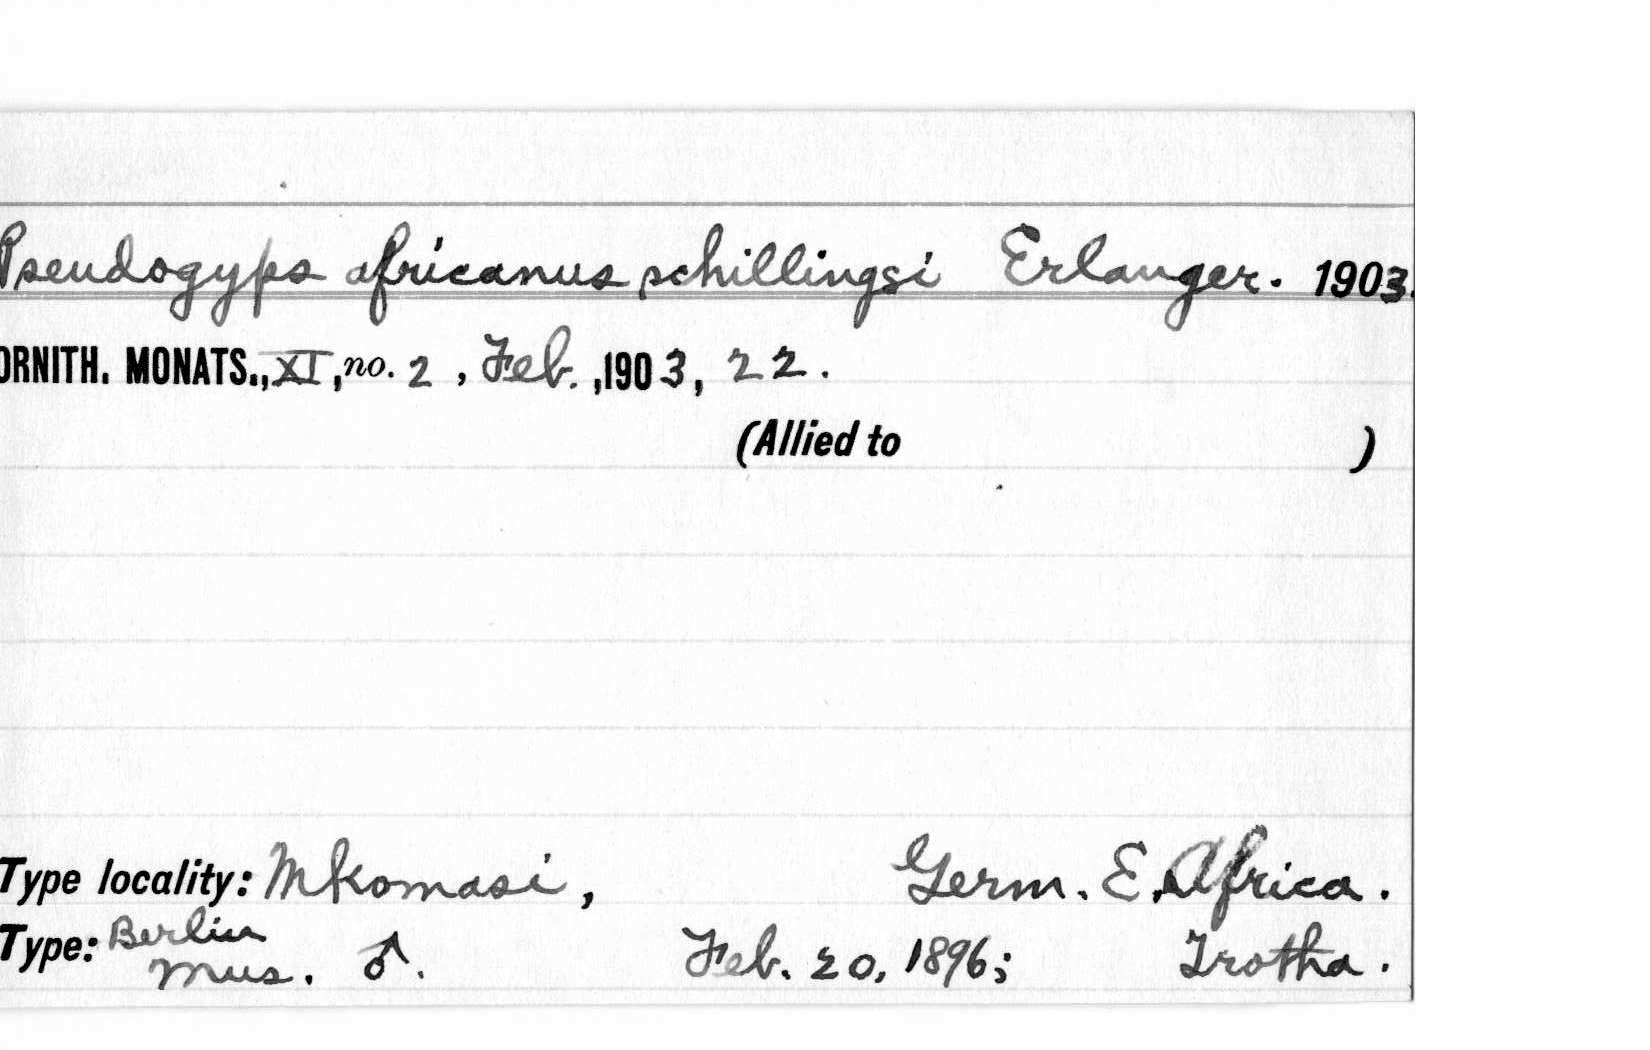 Pseudogyps africanus schillingsi Erlanger. 1903.
ORNITH. MONATS., XI, no. 2, Feb., 1903, 22.
(Allied to )
Type locality: Mkomasi, Germ. E. Africa.
Type: Berlin Mus. ♂. Feb. 20, 1896; Trotha.